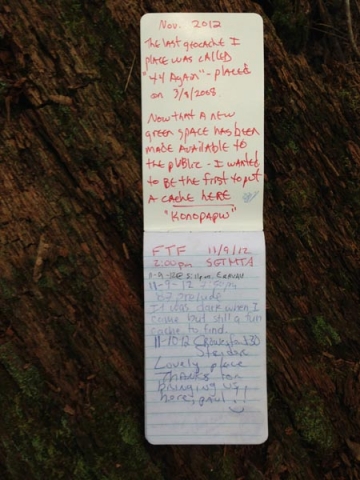 Nov. 2012
The last geocache I
place was called
"44 Again" - placed
on 3/8/2008.
Now that a new
green space has been
made available to
the public - I wanted
to be the first to put
a cache here
"Konopapw"
FTF 11/9/12
2:00pm SGTMTA
11-9-12
11-9-12 2:50pm
prelude
It was dark when I
came but still a fun
cache to find.
11-10-12
Lovely place
Thanks for
bringing us
here, paul!!